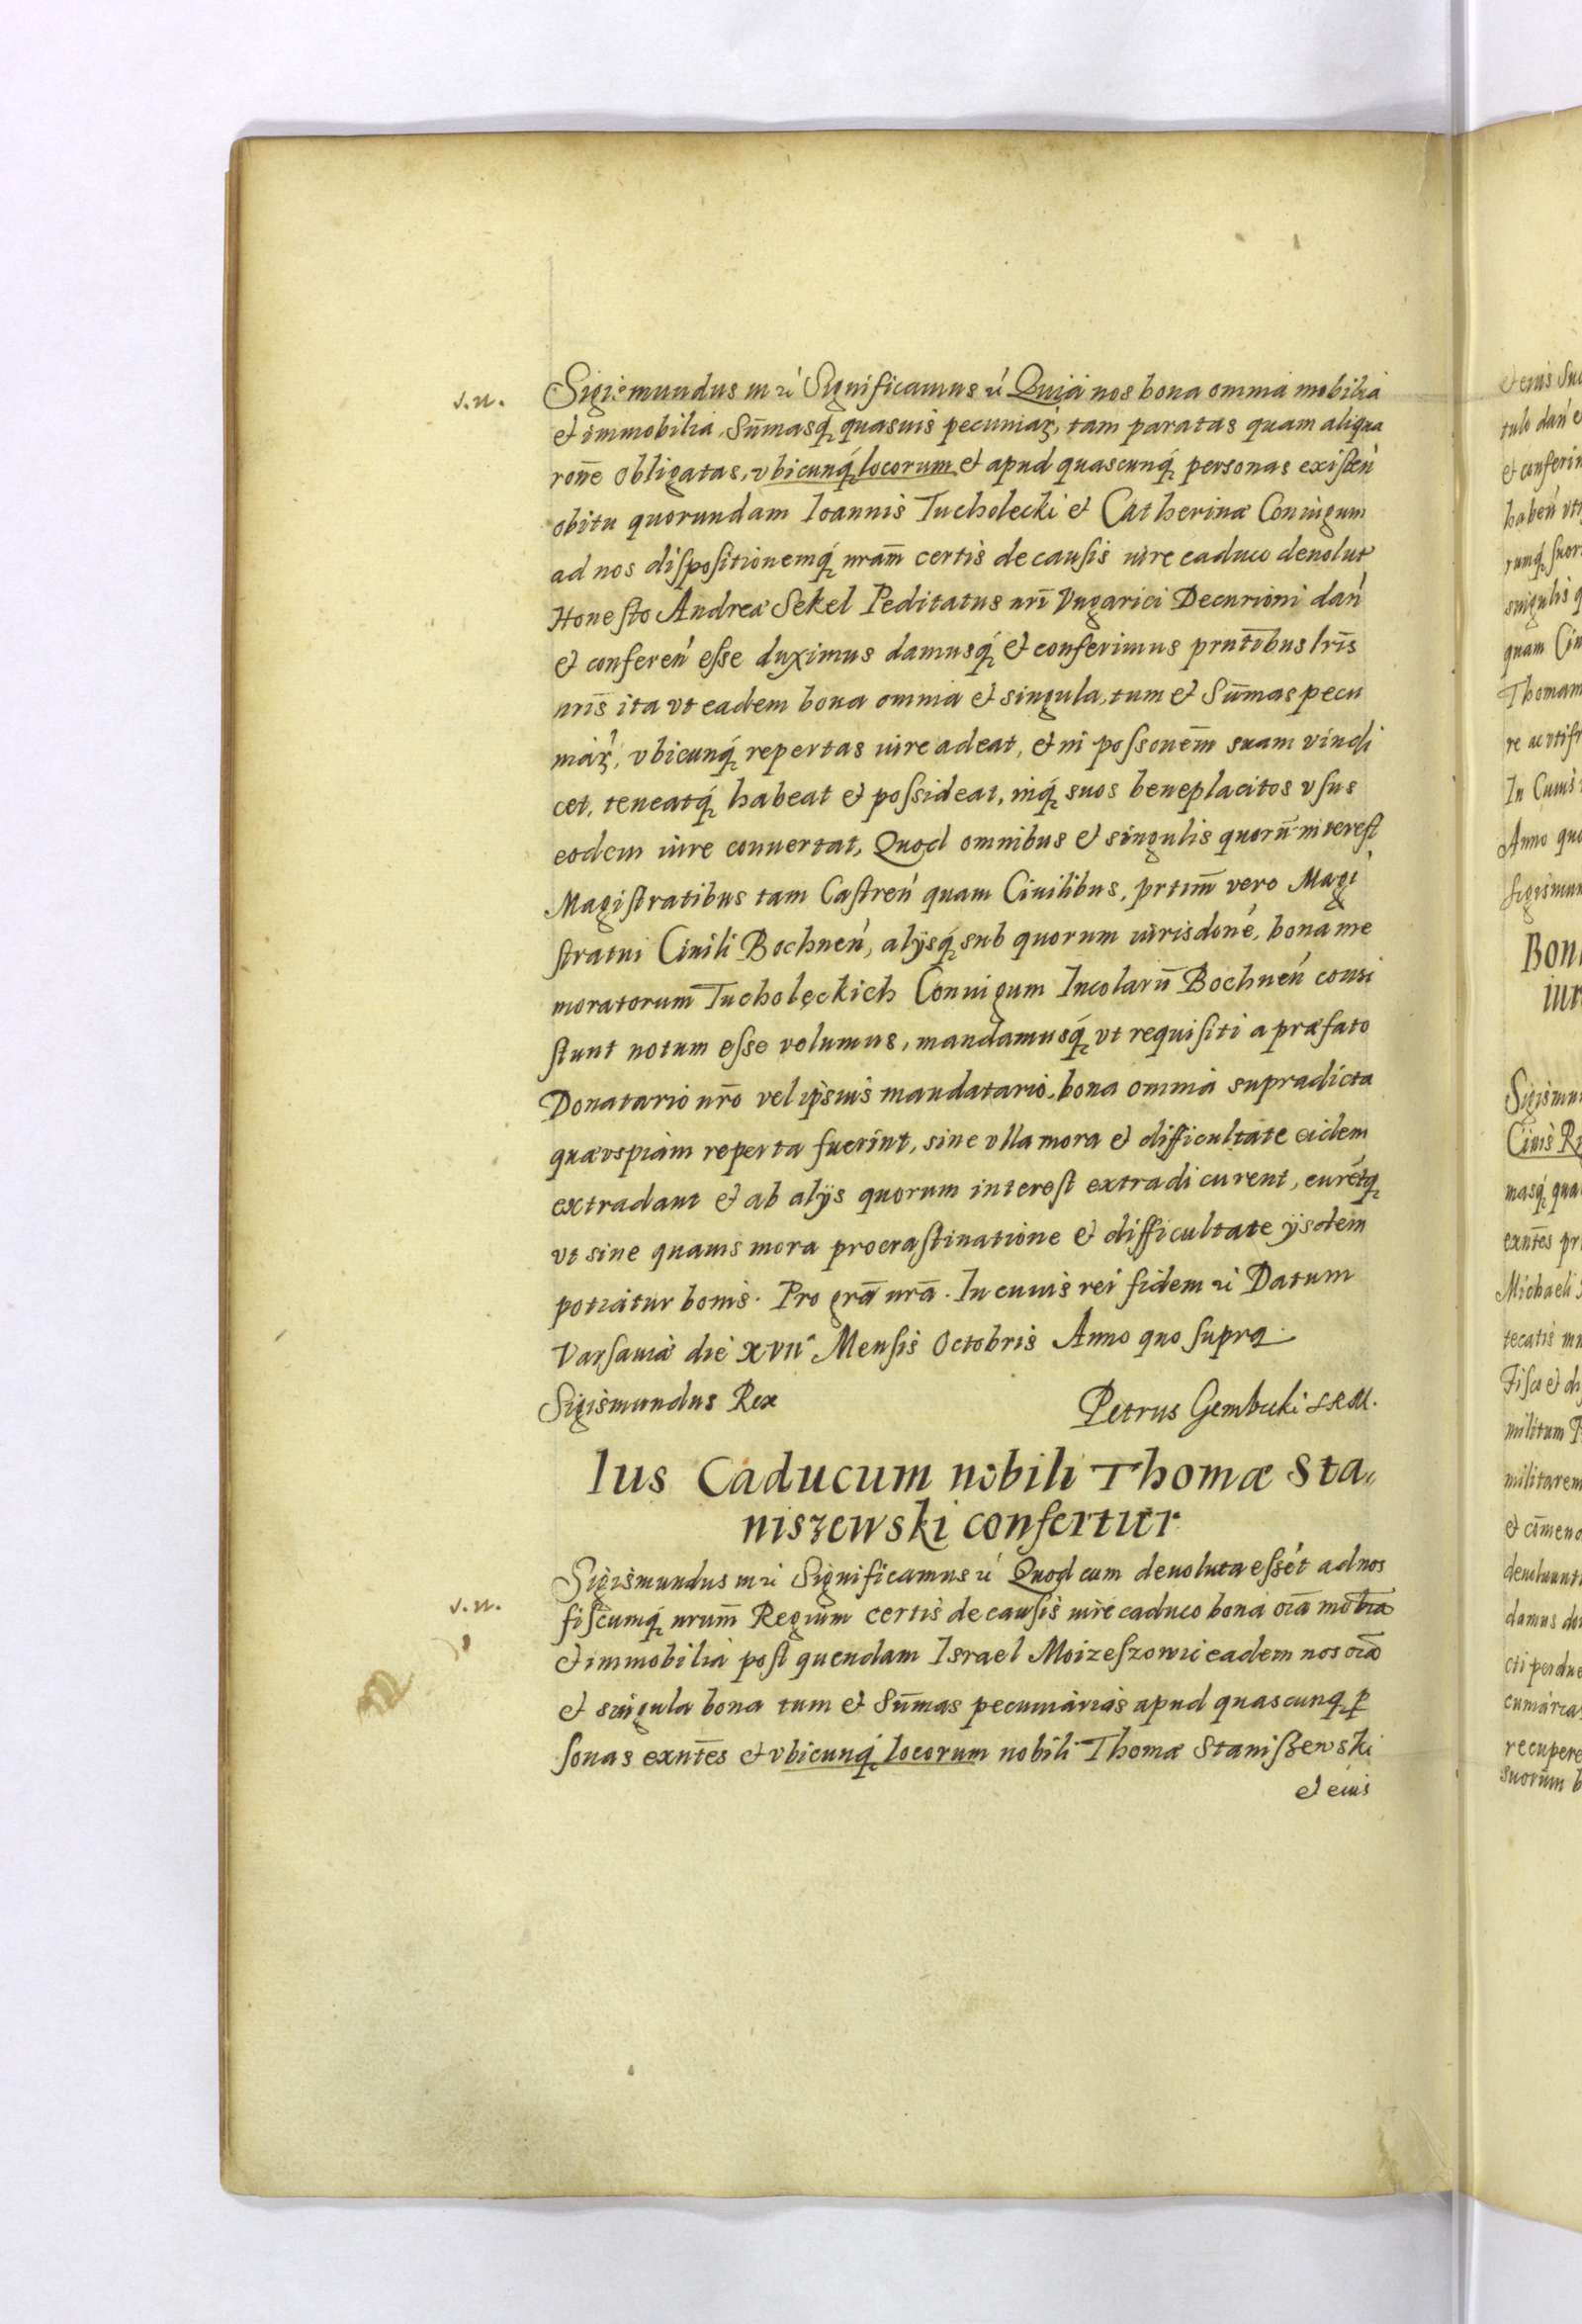 s.n.
Sigismundus III ꝛc̃ Significamus ꝛc̃ Quia nos bona omnia mobilia
et immobilia, Sum̃asq́ꝫ quasuis pecuniaꝝ, tam paratas quam aliqua
rone̅ obligatas, vbicunq́ꝫ locorum et apud quascunq́ꝫ personas existeń
obitu quorundam Ioannis Tucholecki et Catherinæ Coniugum
ad nos dispositionemq́ꝫ nram̅ certis de causis iure caduco deuolut
Honesto Andreæ Sekel Peditatus nri̅ Vngarici Decurioni dań
et confereń esse duximus damusq́ꝫ et conferimus prnti̅bus lris̅
nris̅ ita vt eadem bona omnia et singula, tum et Sum̅as pecu
niaꝝ, vbicunq́ꝫ repertas iure adeat, et in possonem̅ suam vindi
cet, teneatq́ꝫ habeat et possideat, inq́ꝫ suos beneplacitos vsus
eodem iure conuertat, Quod omnibus et singulis quoru̅ interest
Magistratibus tam Castreń quam Ciuilibus, prtim̅ vero Magi
stratui Ciuili Bochneń, alijsq́ꝫ sub quorum iurisdone̅, bona me
moratorum Tucholęckich Coniugum Incolaru̅ Bochneń consi
stunt notum esse volumus, mandamusq́ꝫ vt requisiti a præfato
Donatario nro̅ vel ipsius mandatario, bona omnia supradicta
quæ vspiam reperta fuerint, sine vlla mora et difficultate eidem
extradant et ab alijs quorum interest extradi curent, cure̅tqꝫ
vt sine quauis mora procrastinatione et difficultate ijsdem
potiatur bonis. Pro gra̅ nra̅. In cuius rei fidem ꝛc̃ Datum
Varsauiæ die XVII Mensis Octobris Anno quo supra.
Sigismundus Rex Petrus Gembicki S.R.M.
Ius Caducum nobili Thomæ Sta„
niszewski confertur
s.n.
Sigismundus III ꝛc̃ Significamus ꝛc̃ Quod cum deuoluta essét ad nos
fiscumq́ꝫ nrum̅ Regium certis de causis iure caduco bona oi̅a mobi̅a
et immobilia post quendam Israel Moizeszowic eadem nos oi̅a
et singula bona tum et Sum̅as pecuniarias apud quascunqꝫ ꝑ
sonas exnte̅s et vbicunq́ꝫ locorum nobili Thomæ Staniszewski
et eius